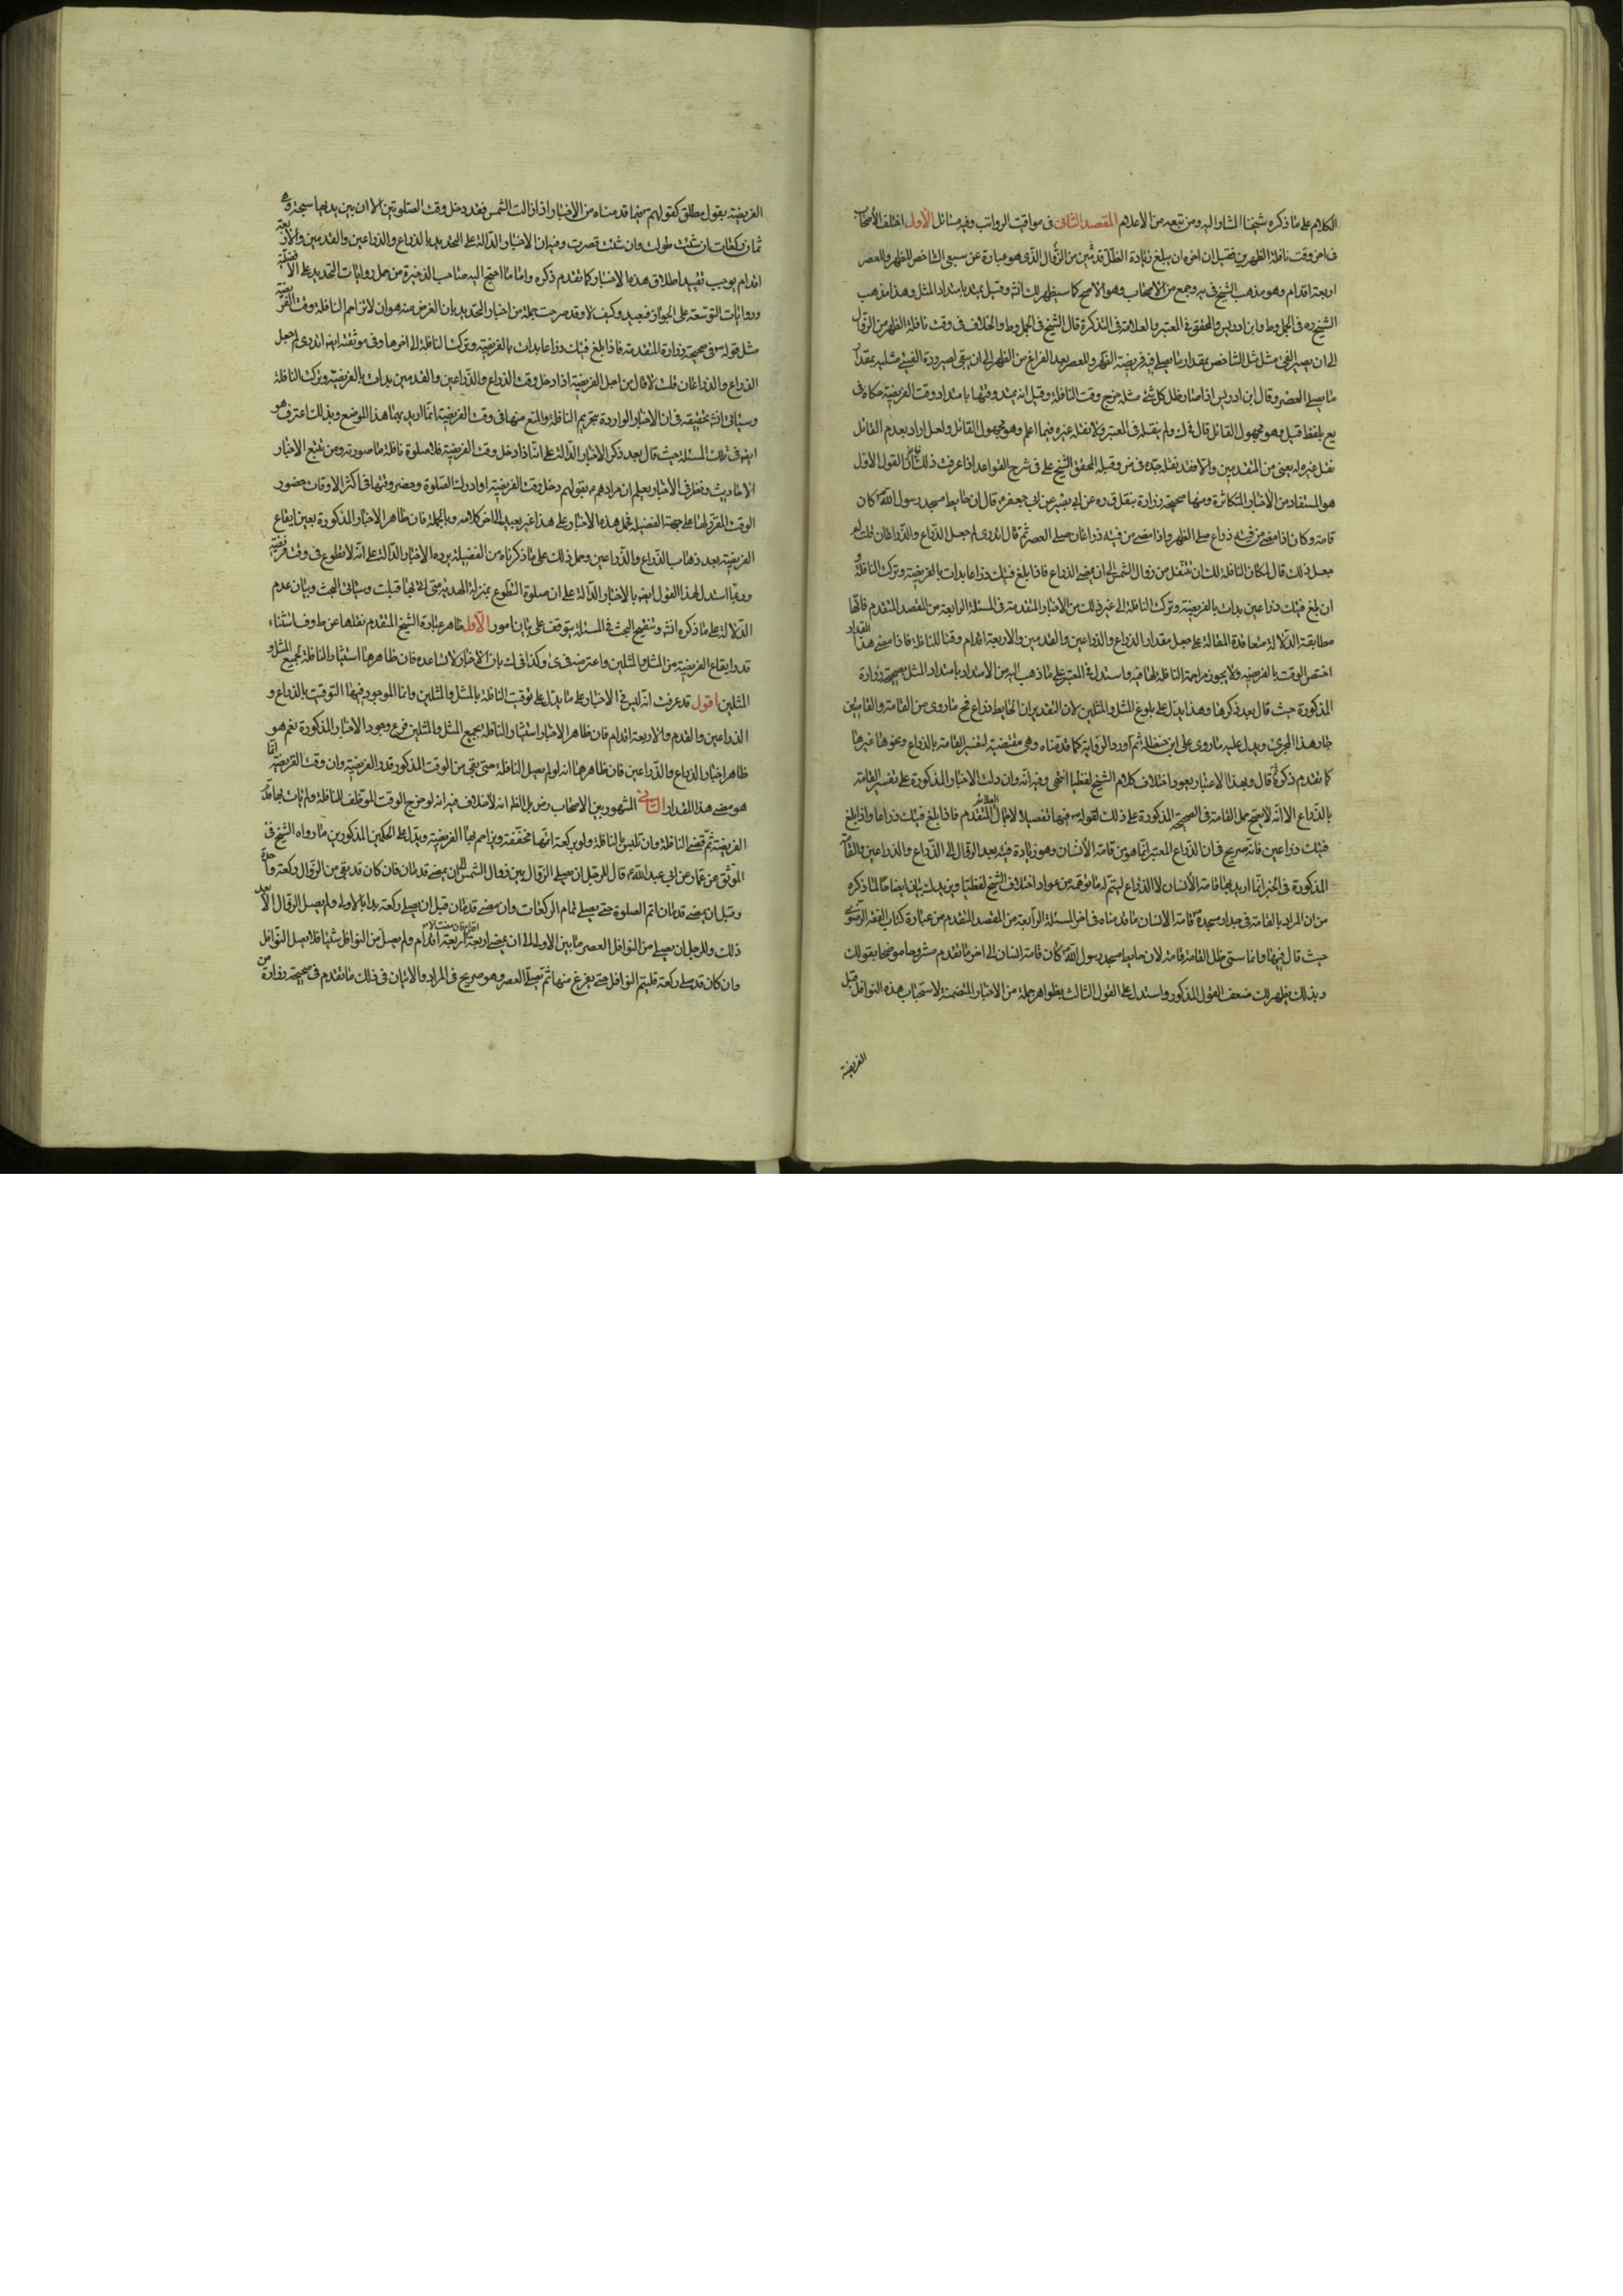 الكلام على ما ذكره شيخنا المشار اليه ومن تبعه من الاعلام المقصد الثانى فى مواقيت الرواتب وفيه مسائل الاول اختلف الأصحاب
فى اخر وقت نافلة الظهرين فقيل ان اخره ان يبلغ زيادة الظل قدمين من الزوال الذى هو عبارة عن سبعى الشاخص للظهر وللعصر
اربعة اقدام وهو مذهب الشيخ فى يه وجمع من الاصحاب وهو الاصح كما سيظهر لك انش وقيل يمتد بامتداد المثل وهذا مذهب
الشيخ ره فى الجمل وط وابن ادريس والمحقق فى المعتبر والعلامة فى التذكرة قال الشيخ فى الجمل وط والخلاف فى وقت نافلة الظهر من الزوال
الى ان يصير الفئ مثل الشاخص بمقدار ما يصلى فيه فريضة الظهر وللعصر بعد الفراغ من الظهر الى ان يبقى لصيرورة الفيئ مثليه بمقدار
ما يصلى العصر وقال ابن ادريس اذا صار ظل كل شئ مثله خرج وقت النافلة وقيل انه يمتد وقتها بامتداد وقت الفريضة حكاه فى
يع بلفظ قيل وهو مجهول القائل قال فى ك ولم ينقله فى المعتبر ولا نقله غيره فيما اعلم وهو مجهول القائل ولعل اراد بعدم القائل
نقل غيره له يعنى من المتقدمين والا فقد نقله جده فى ض وقبله المحقق الشيخ على فى شرح القواعد اذا عرفت ذلك فاعلم ان القول الاول
هو المستفاد من الأخبار المتكاثرة ومنها صحيحة زرارة بنقل ق ره عن ابى جعفر ع قال ان حايط مسجد رسول الله ص كان
قامة وكان اذا مضى من فيئه ذراع صلى الظهر واذا مضى من فيئه ذراعان صلى العصر ثم قال اتدرى لم جعل الذراع والذراعان قلت لم
جعل ذلك قال لمكان النافلة لك ان تتنفل من زوال الشمس الى ان يمضى الذراع فاذا بلغ فيئك ذراعا بدات بالفريضة وتركت النافلة و
ان بلغ فيئك ذراعين بدات بالفريضة وتركت النافلة الى غير ذلك من الاخبار المتقدمة فى المسئلة الرابعة من المقصد المتقدم فانها
مطابقة الدلالة متعاضدة المقالة على جعل مقدار الذراع والذراعين والقدمين والاربعة اقدام وقتا للنافلة فاذا مضى هذا المقدار
اختص الوقت بالفريضة ولا يجوز مزاحمة النافلة لها فيه واستدل فى المعتبر على ما ذهب اليه من الامتداد بامتداد المثل بصحيحة زرارة
المذكورة حيث قال بعد ذكرها وهذا يدل على بلوغ المثل والمثلين لان التقدير ان الحايط ذراع فح ما روى من القامة والقامتين
جار هذا المجرى ويدل عليه ما روى على ابن حنظلة ثم اورد الرواية كما قدمناه وهى مقتضية لتفسير القامة بالذراع ونحوها غيرها
كما تقدم ذكره ثم قال وبهذا الاعتبار يعود اختلاف كلام الشيخ لفظيا انتهى وفيه انه وان دلت الاخبار المذكورة على تفسير القامة
بالذراع الا انه لا يصح حمل القامة فى الصحيحة المذكورة على ذلك لقوله ع فيها تفصيلا لاجمال الكلام المتقدم فاذا بلغ فيئك ذراعا واذا بلغ
فيئك ذراعين فانه صريح فى ان الذراع المعتبر انما هو من قامة الأنسان وهو زيادة فيئه بعد الزوال الى الذراع والذراعين والقامة
المذكورة فى الخبر انما اريد بها قامة الأنسان لا الذراع ليتم له ما توهمه من عود اختلاف الشيخ لفظيا ويزيدك بيانا ايضاحا لما ذكره
من ان المراد بالقامة فى جدار مسجده ص قامة الأنسان ما قدمناه فى اخر المسئلة الرابعة من المقصد المتقدم من عبارة كتاب الفقه الرضوى
حيث قال فيها وانما سمى ظل القامة قامة لان حايط مسجد رسول الله ص كان قامة انسان الى اخر ما تقدم مشروحا موضحا بقولك
وبذلك يظهر لك ضعف القول المذكور واستدل على القول الثالث بظواهر جملة من الاخبار المتضمنة لاستحباب هذه النوافل قبل
الفريضة
الفريضة بقول مطلق كقولهم ع فيها قدمناه من الاخبار اذا زالت الشمس فقد دخل وقت الصلوتين الا ان بين يديها سبحة وهى
ثمان ركعات ان شئت طولت وان شئت قصرت وفيه ان الاخبار الدالة على التحديد بالذراع والذراعين والقدمين والاربعة
اقدام يوجب تقييد اطلاق هذه الاخبار كما تقدم ذكره واما ما احتج اليه صاحب الذخيرة من حمل روايات التحديد على الافضلية
وروايات التوسعة على الجواز فبعيد وكيف لا وقد صرحت جملة من اخبار التحديد بان الغرض منه هو ان لا تزاحم النافلة وقت الفريضة
مثل قوله ع فى صحيحة زرارة المتقدمة فاذا بلغ فيئك ذراعا بدات بالفريضة وتركت النافلة الى اخرها وفى موثقته ايضا اتدرى لم جعل
الذراع والذراعان قلت لا قال من اجل الفريضة اذا دخل وقت الذراع والذراعين والقدمين بدات بالفريضة وتركت النافلة
وسياتى انش تحقيقه فى ان الاخبار الواردة بتحريم النافلة والمنع منها فى وقت الفريضة انما اريد بهما هذا الموضع وبذلك اعترف هو
ايضا فى تلك المسئلة حيث قال بعد ذكر الاخبار الدالة على انه اذا دخل وقت الفريضة فلا صلوة نافلة ما صورته ومن تتبع الاخبار
الاحاديث ونظر فى الاخبار يعلم ان مرادهم ع بقولهم دخل وقت الفريضة او ادرك الصلوة وحضر وقتها فى اكثر الاوقات حضور
الوقت المقرر لها على جهة الفضيلة فحمل هذه الاخبار على هذا غير بعيد الى اخر كلامه وبالجملة فان ظاهر الاخبار المذكورة يعين ايقاع
الفريضة بعد ذهاب الذراع والذراعين وحمل ذلك على ما ذكرناه من الفضيلة يرده الاخبار الدالة على انه لا تطوع فى وقت فريضة
وربما استدل لهذا القول ايضا بالاخبار الدالة على ان صلوة التطوع بمنزلة الهدية متى اتى بها قبلت وسياتى البحث وبيان عدم
الدلالة على ما ذكره انش وتنقيح البحث فى المسئلة يتوقف على بيان امور الاول ظاهر عبارة الشيخ المتقدم نقلها عن ط وف استثناء
قدر ايقاع الفريضة من المثل والمثلين واعترضه فى ى وكذا فى ك بان الاخبار لا تساعده فان ظاهرها استيثار النافلة بجميع المثل و
المثلين اقول قد عرفت انه ليس فى الاخبار على ما يدل على توقيت النافلة بالمثل والمثلين وانما الموجود فيها التوقيت بالذراع و
الذراعين والقدم والاربعة اقدام فان ظاهر الاخبار استيثار النافلة بجميع المثل والمثلين فرع وجود الاخبار المذكورة نعم هو
ظاهر اخبار الذراع والذراعين فان ظاهرها انه لو لم يصل النافلة حتى بقى من الوقت المذكور قدر الفريضة وان وقت الفريضة انما
هو مضى هذا المقدار الثانى المشهور بين الاصحاب رض بل الظ انه لا خلاف فيه انه لو خرج الوقت الموظف للنافلة ولم يات بها قدم
الفريضة ثم قضى النافلة وان تلبس بالنافلة ولو بركعة اتمها مخففة وزاحم بها الفريضة ويدل على الحكمين المذكورين ما رواه الشيخ فى
الموثق عن عمار عن ابى عبد الله ع قال للرجل ان يصلى الزوال بين زوال الشمس الى ان يمضى قدمان فان كان قد بقى من الزوال ركعة واحدة
وقبل ان يمضى قدمان اتم الصلوة حتى يصلى تمام الركعات وان مضى قدمان قبل ان يصلى ركعة بدا بالاولى ولم يصل الزوال الا بعد
ذلك وللرجل ان يصلى من النوافل العصر ما بين الاولى الى ان يمضى اربعة اقدام فان مضت الاربعة اقدام ولم يصل من النوافل شيئا فلا يصل النوافل
وان كان قد صلى ركعة فليتم النوافل حتى يفرغ منها ثم يصلى العصر وهو صريح فى المراد ولا ينافى ذلك ما تقدم فى صحيحة زرارة من